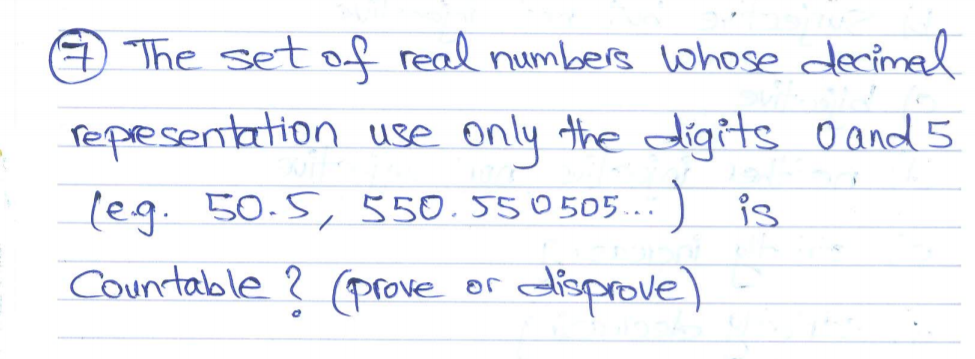 7 The set of real numbers whose decimal
representation use only the digits 0 and 5
(e.g. 50.5, 550.550505...) is
Countable? (prove or disprove)